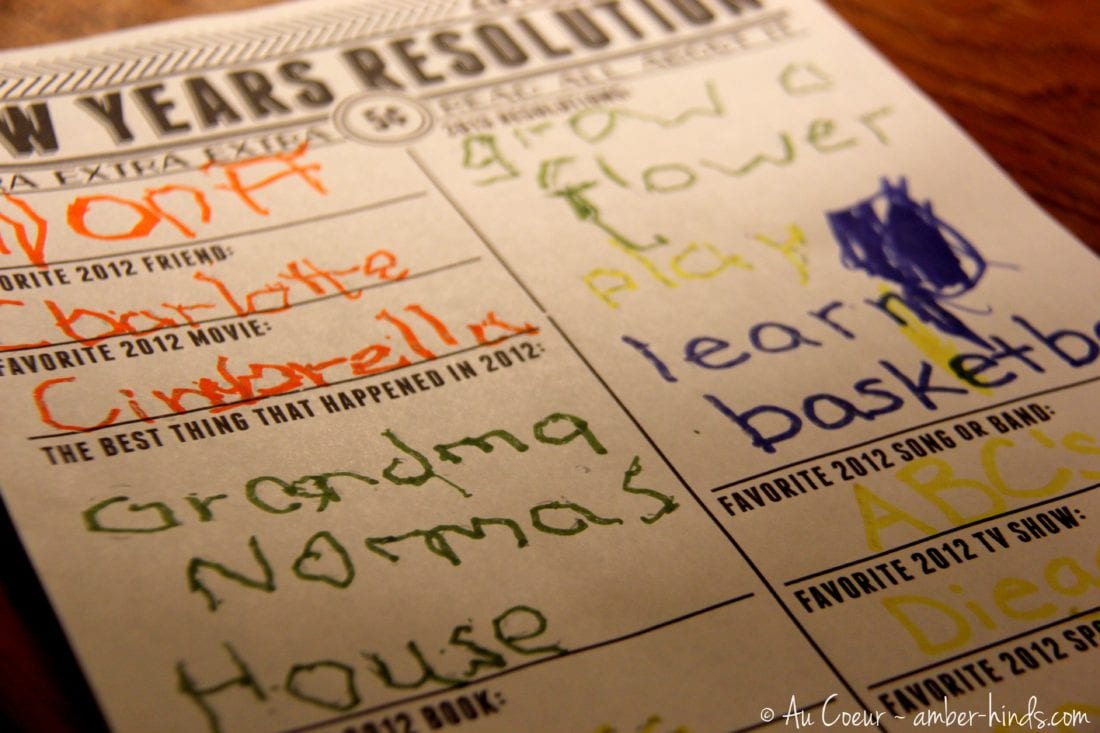 W YEARS RESOLUTION
RA EXTRA EXTRA
5¢
READ ALL ABOUT IT
NonA
ORITE 2012 FRIEND:
Charlotte
FAVORITE 2012 MOVIE:
Cinbrella
THE BEST THING THAT HAPPENED IN 2012:
Grandma
Normas
House
2012 BOOK:
2013 RESOLUTIONS:
graw a
flower
play
learn
basketba
FAVORITE 2012 SONG OR BAND:
ABC's
FAVORITE 2012 TV SHOW:
Diego
FAVORITE 2012 SP
© Au Coeur ~ amber-hinds.com